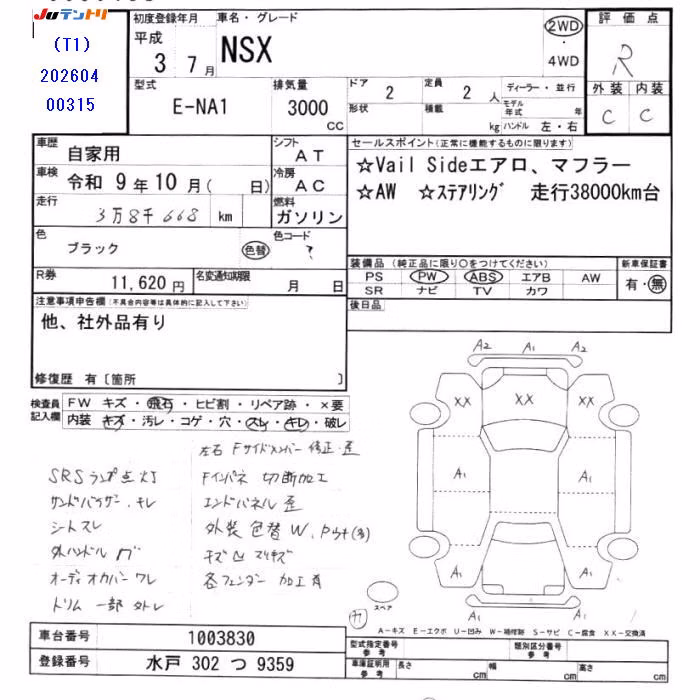 JUテントリ
(T1)
202604
00315
初度登録年月
平成
3 7月
車名・グレード
NSX
2WD
4WD
評価点
R
外装 内装
C C
型式
E-NA1
排気量
3000
CC
ドア 2
形状
定員 2 人
積載 kg
ディーラー・並行
モデル年式 年
ハンドル 左・右
車歴
自家用
シフト
AT
車検
令和 9年10月( 日)
冷房
AC
走行
3万8千668 km
燃料
ガソリン
色
ブラック
色替
色コード
?
R券
11,620円
名変通知期限
月 日
セールスポイント(正常に機能するものに限ります)
☆Vail Sideエアロ、マフラー
☆AW ☆ステアリング 走行38000km台
装備品(純正品に限り○をつけてください)
PS PW ABS エアB AW
SR ナビ TV カワ
新車保証書
有・無
後日品
注意事項申告欄(不具合内容等は具体的に記入して下さい)
他、社外品有り
修復歴 有〔箇所 〕
検査員記入欄
FW キズ・飛石・ヒビ割・リペア跡・×要
内装 キズ・汚レ・コゲ・穴・スレ・キレ・破レ
左右 Fサイドメンバー 修正・歪
SRSランプ点灯
Fインパネ 切断加工
サンドバイザー、キレ
エンドパネル歪
シートスレ
外装 色替 W、Pウキ(多)
外ハンドル
キズ凹 スリキズ
オーディオカバー ワレ
各フェンダー 加工有
トリム 一部 外レ
A2 A1 A2
XX XX XX
A1 A1
A1 A1
A1
スペア
A-キズ E-エクボ U-凹み W-補修跡 S-サビ C-腐食 XX-交換済
車台番号
1003830
登録番号
水戸 302 つ 9359
型式指定番号
参考
類別区分番号
参考
車庫証明用
参考
長さ cm
幅 cm
高さ cm